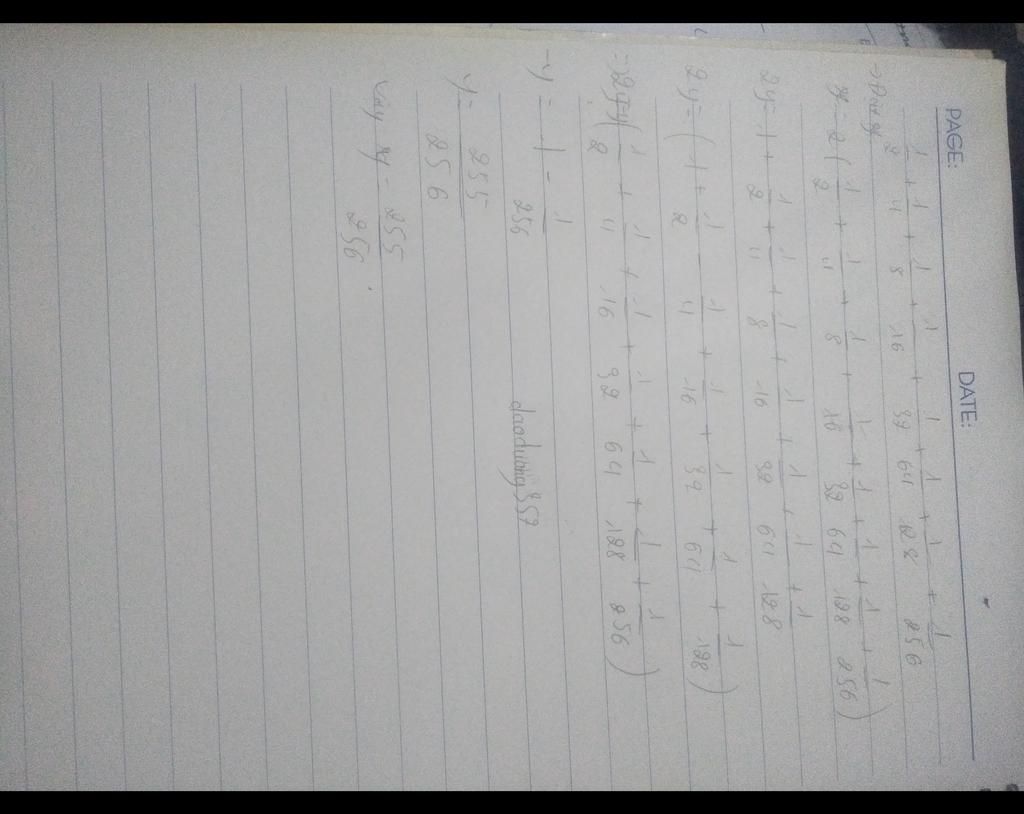 PAGE: DATE:
1/2 + 1/4 + 1/8 + 1/16 + 1/32 + 1/64 + 1/128 + 1/256
= 2(1/2 + 1/4 + 1/8 + 1/16 + 1/32 + 1/64 + 1/128 + 1/256)
2y = 1 + 1/2 + 1/4 + 1/8 + 1/16 + 1/32 + 1/64 + 1/128
2y = (1 + 1/2 1/4 + 1/16 + 1/32 + 1/64 + 1/128)
(1/2 + 1/4 + 1/16 + 1/32 + 1/64 + 1/128 + 1/256)
y = 1 - 1/256
daoduong357
y = 255/256
vậy y = 255/256.